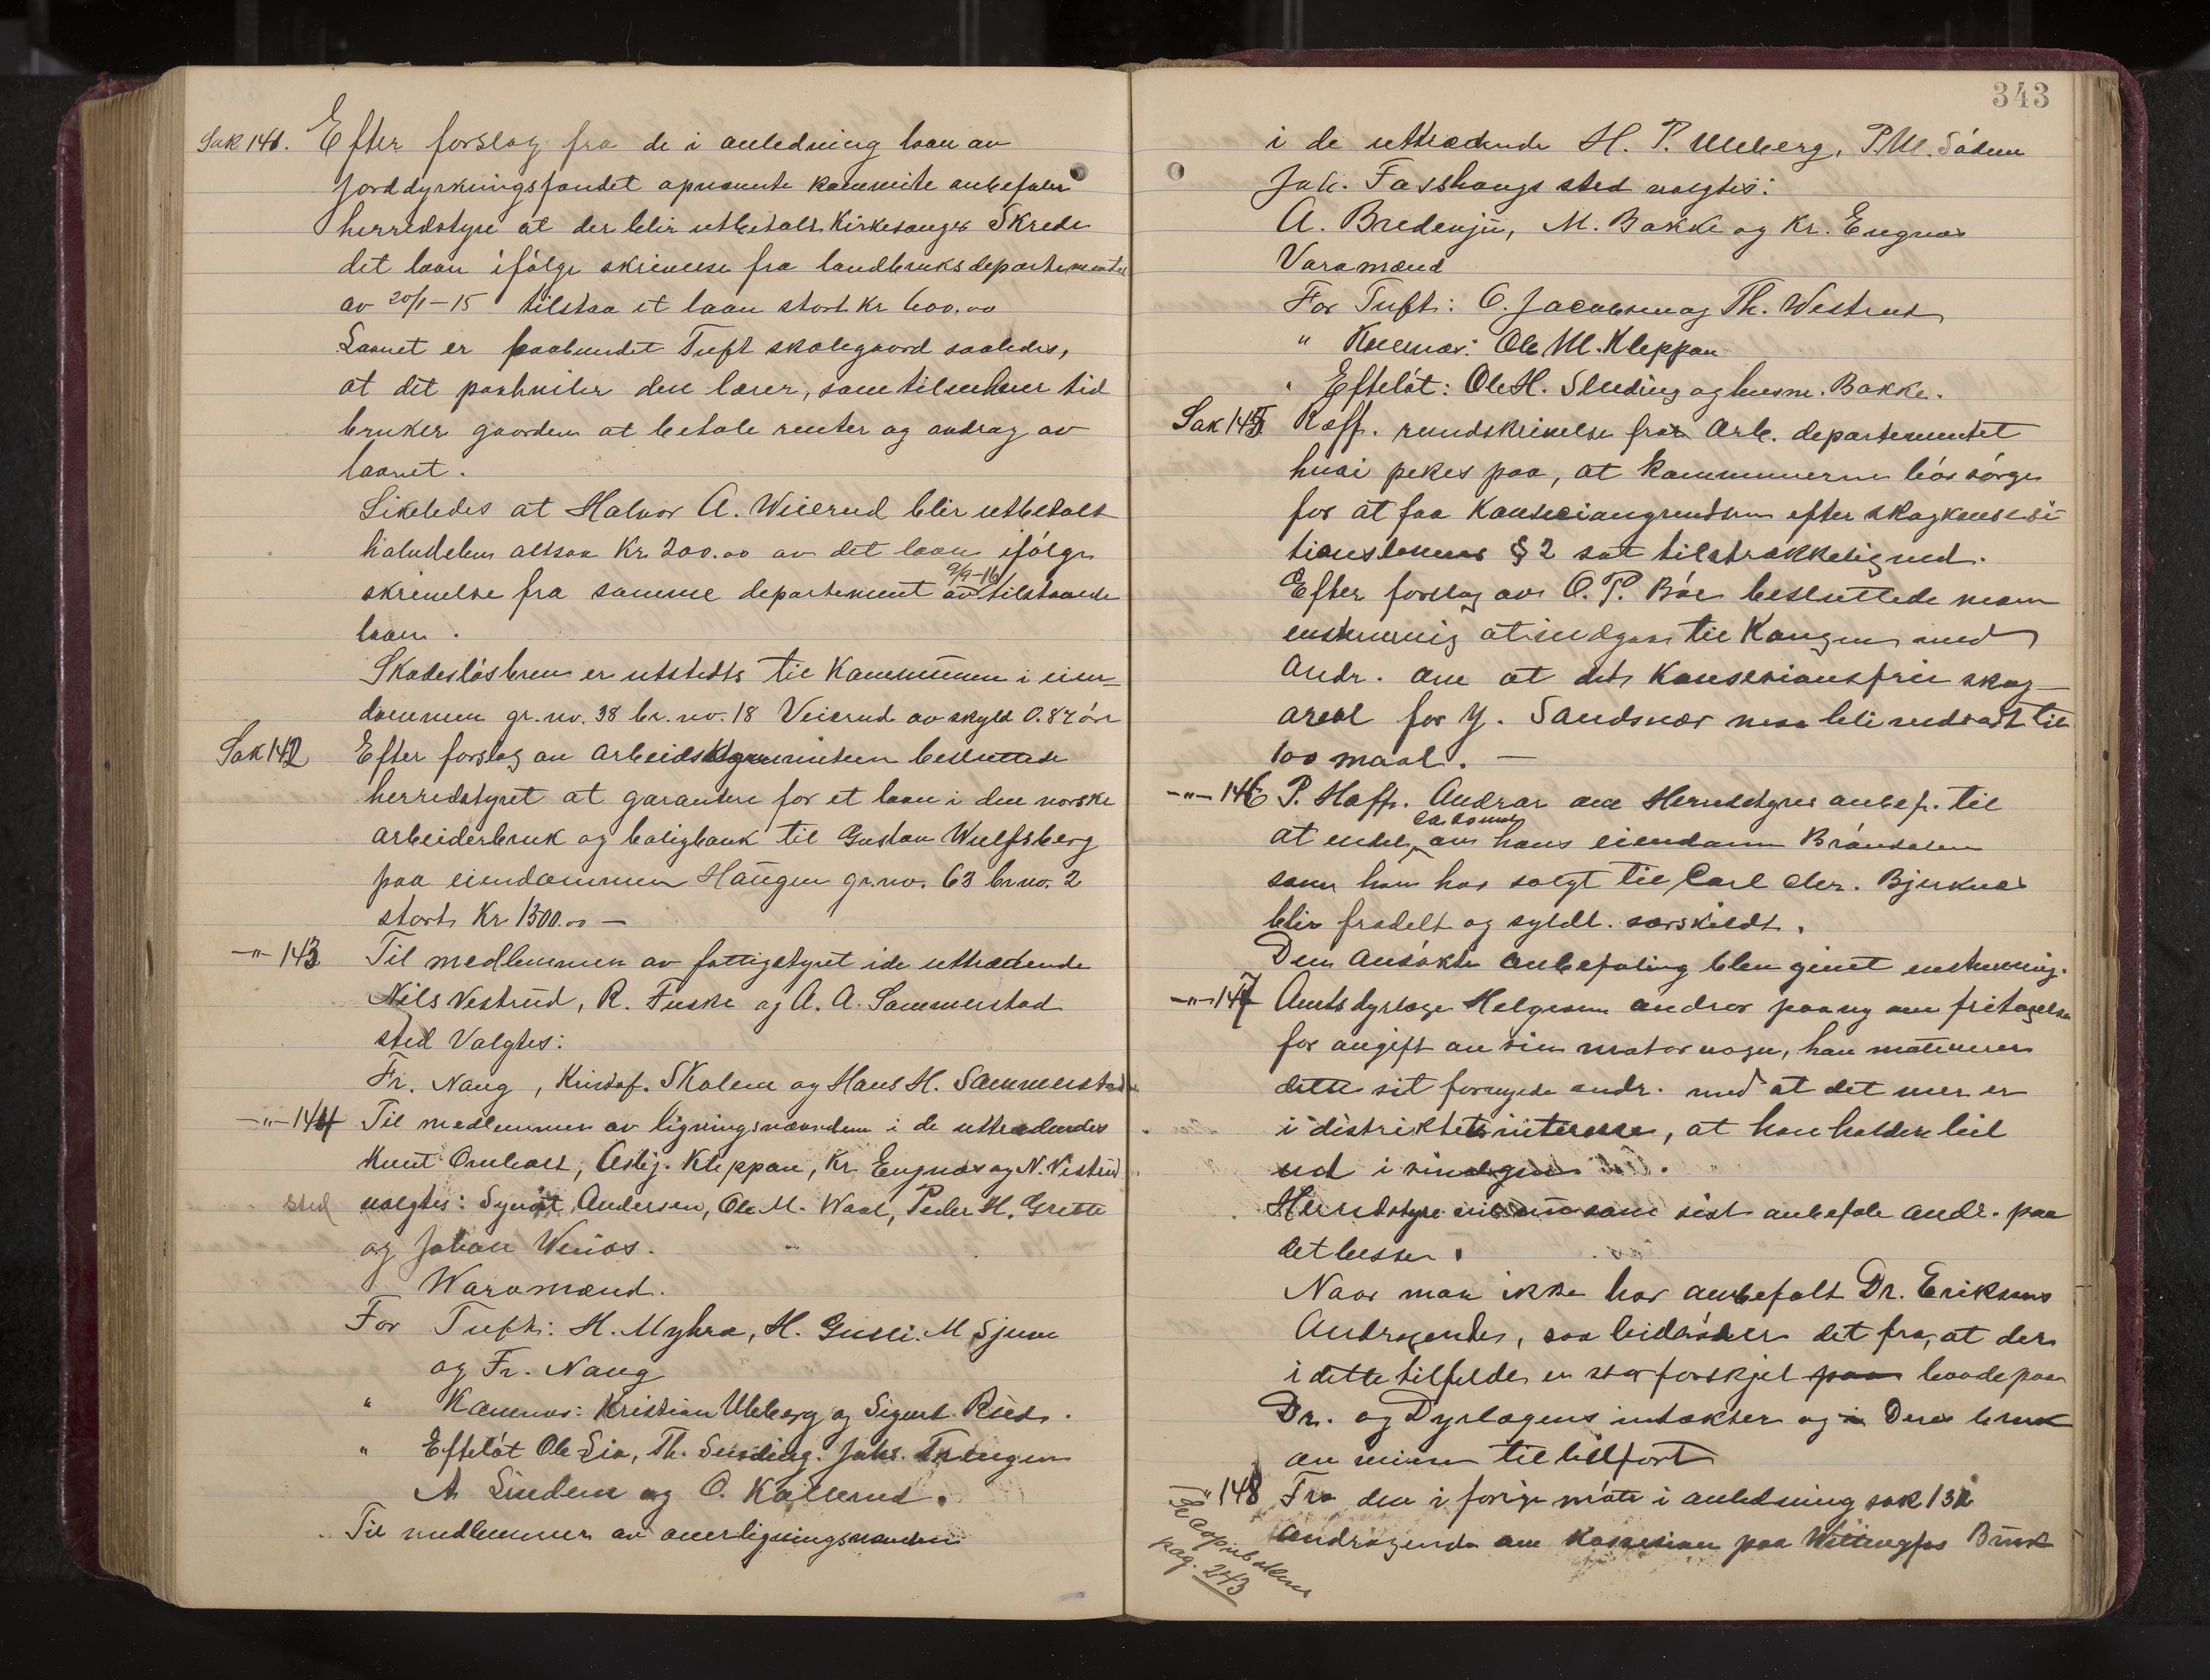 Sak 141. Efter forslag fra de i anledning laan av
Jorddyrkningsfondet opnevnte kommite anbefaler
herredstyre at der blir utbetalt Kirkesanger Skrede
det laan ifølge skrivelse fra landbruksdepartementet
av 20/1-15 tilstaa et laan stort Kr 600.00
Laanet er paabundet Tuft skolegaard saaledes,
at det paahviler den lærer, som til enhver tid
bruker gaarden at betale renter og avdrag av
laanet.
Likeledes at Halvor A. Weierud blir utbetalt
halvdelen altsaa Kr. 200.00 av det laan ifølge
skrivelse fra samme departement av 9/9-16 tilstaaede
laan.
Skadesløsbrev er utstedts til Kommunen i eien-
dommen gr.no. 38 br.no. 18 Veierud av skyld 0.87 øre
Sak 142 Efter forslag av Arbeidskommiteen besluttede
herredstyret at garantere for et laan i den norske
arbeiderbruk og boligbank til Gustav Wulfsberg
paa eiendommen Haugen gr.no. 63 br.no. 2
stort Kr 1500.00 —
-"- 143 Til medlemmer av fattigstyret i de uttrædende
Nils Vestrud, R. Fuske og A. A. Sommerstad
sted Valgtes:
Fr. Naug, Kristof. Skolem og Hans H. Sammerstad
-"- 144 Til medlemmer av ligningsnævnden i de uttrædendes
Knut Omholt, Asbj. Kleppan, Kr. Engnæs og N. Vestrud
sted valgtes: Synnøt Andersen, Ole M. Waal, Peder H. Grette
og Johan Weiaas.
Waramænd.
For Tuft: H. Myhra, H. Gulli. M Sjuve
og Fr. Naug
" Komnes: Kristian Ulleberg og Sigurt Rud.
" Efteløt Ole Lia, Th. Sunding. Johs. Trengen
A Linden og O. Kallerud.
Til medlemmer av overligningsnævnden
343
i de uttrædende H. P. Ulleberg, P.M. Søden
Jak. Fosshaugs sted valgtes:
A. Bredenju, M. Bakke og Kr. Engnæs
Varamænd
For Tuft: O. Jacobsen og Th. Westrud
" Komnes: Ole M. Kleppan
" Efteløt: Ole H. Sluding og husm. Bakke.
Sak 145. Ræff. rundskrivelse fra Arb. departementet
hvori pekes paa, at Kommunerne bør sørge
for at faa Konsesiongrendsen efter skogkonsesi-
tionslovens § 2 sat tilstrækkelig ned.
Efter forslag av O. P. Bøe besluttede man
enstemmig at indgaa til Kongen med
Andr. om at det Konsesionsfrie skog-
areal for Y. Sandsvær maa bli nedsat til
100 maal. —
-"- 146 P. Hoff. Andrar om Herredstyres anbef. til
at endel av hans eiendom Brøndalen
som han har solgt til Carl Chr. Bjerknes
blir fradelt og skyldl. særskildt.
Den ansøkte anbefaling blev givet enstemmig.
-"- 147 Amtsdyrlæge Helgesen andrar paany om fritagelse
for avgift av sin motorvogn, han motiverer
dette sit fornyede andr. med at det mer er
i distriktets interesse, at han holder bil
end i sin egen.
Herredstyre vil nu som sist anbefale andr. paa
det besste.
Naar man ikke har anbefalt Dr. Eriksens
Andragende, saa beidrører det fra, at der
i dette tilfelde er stor forskjel paa baade paa
Dr. og Dyrlægens intækter og i Deres bruk
av veien til bilfort
" 148 Fra den i forige møte i anledning sak 132
Andragende om Konsesion paa Wittingfos Bruk
Se Copiboken
pag. 243